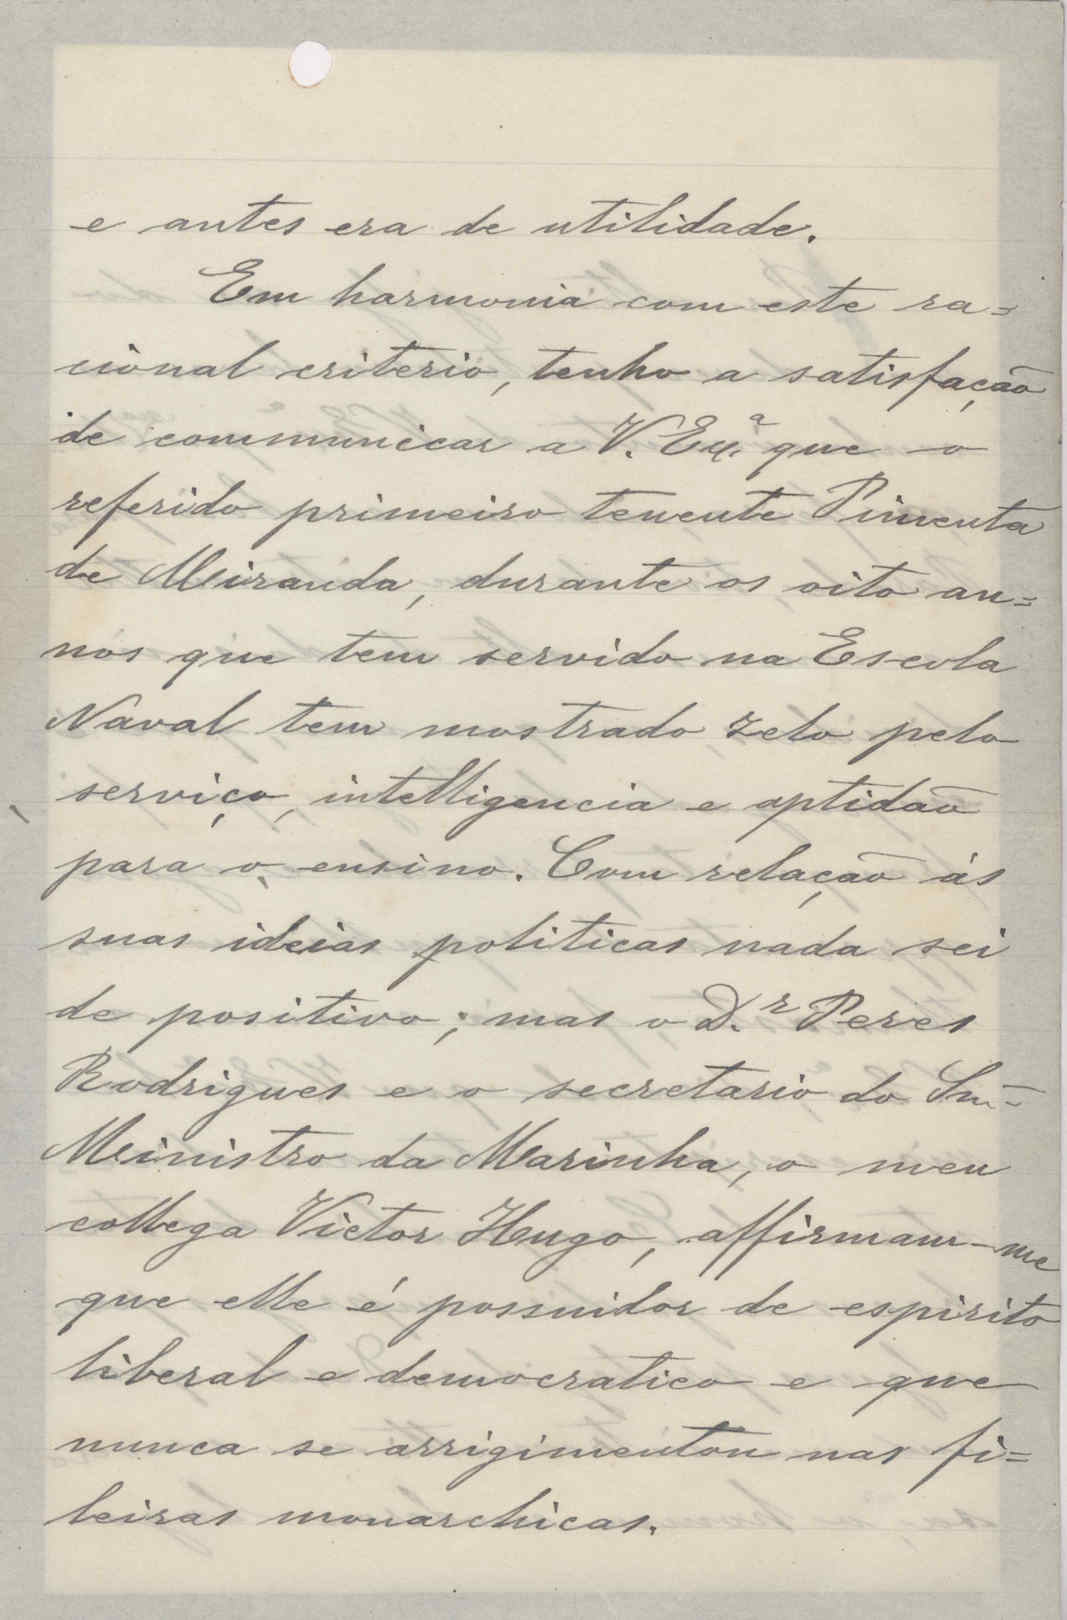 e antes era de utilidade.
Em harmonia com este ra=
cional criterio, tenho a satisfação
de communicar a V. Ex.ª que o
referido primeiro tenente Pimenta
de Miranda, durante os oito an=
nos que tem servido na Escola
Naval tem mostrado zelo pelo
serviço, intelligencia e aptidão
para o ensino. Com relação ás
suas ideias politicas nada sei
de positivo; mas o D.r Peres
Rodrigues e o secretario do Snr.
Ministro da Marinha, o meu
collega Victor Hugo, affirmam-me
que elle é possuidor de espirito
liberal e democratico e que
nunca se arrigimentou nas fi=
leiras monarchicas.